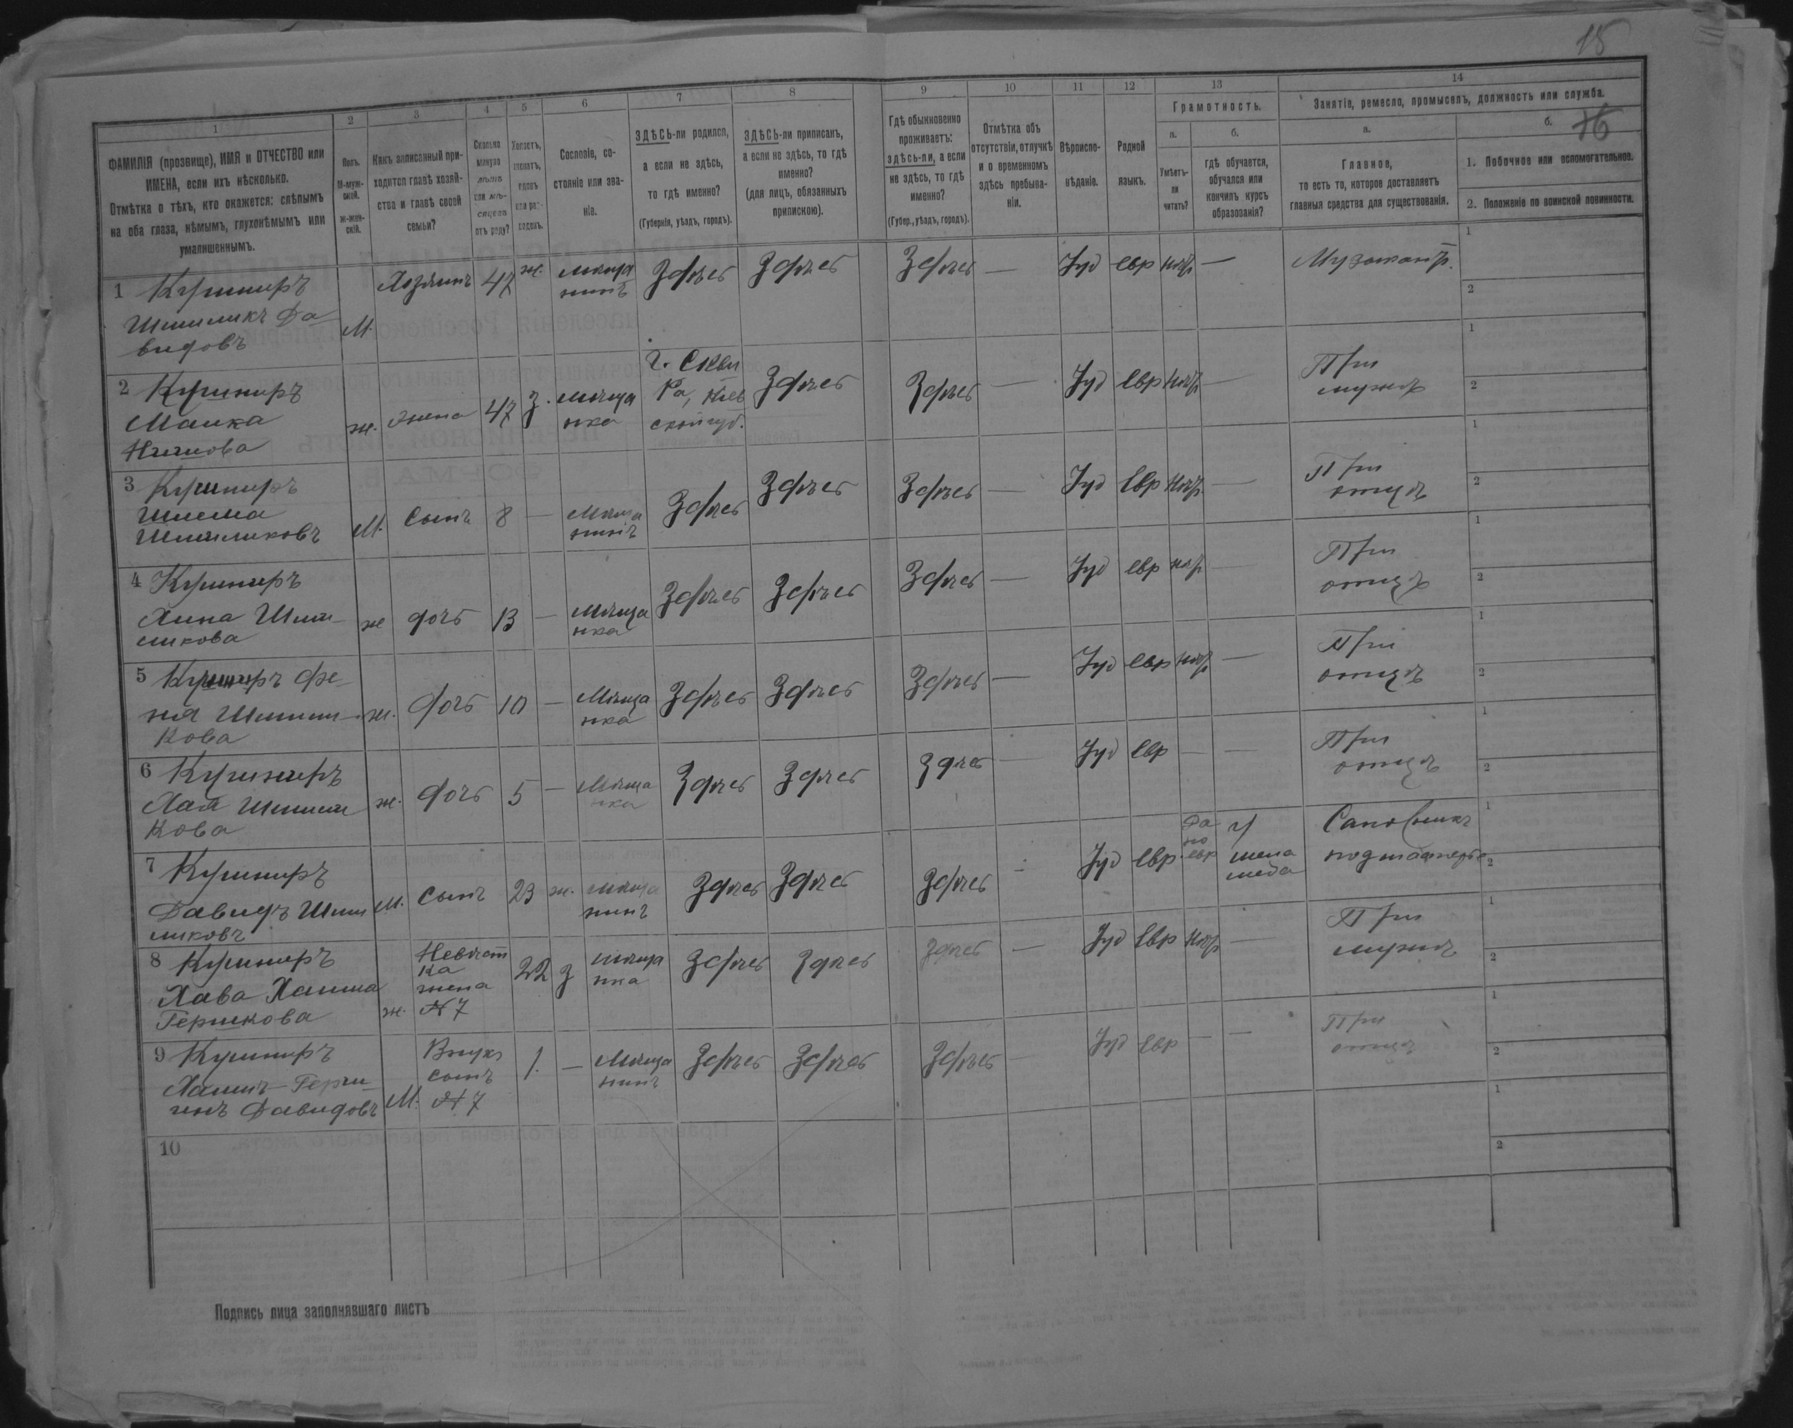 15
16
1 2 3 4 5 6 7 8 9 10 11 12 13 14
ФАМИЛІЯ (прозвище), ИМЯ и ОТЧЕСТВО или
ИМЕНА, если ихъ нѣсколько.
Отмѣтка о тѣхъ, кто окажется: слѣпымъ
на оба глаза, нѣмымъ, глухонѣмымъ или
умалишеннымъ.
Полъ.
М-муж-
ской.
Ж-жен-
скій.
Какъ записанный при-
ходится главѣ хозяй-
ства и главѣ своей
семьи?
Сколько
минуло
лѣтъ
или мѣ-
сяцевъ
отъ роду?
Холостъ,
женатъ,
вдовъ
или раз-
веденъ.
Сословіе, со-
стояніе или зва-
ніе.
ЗДѢСЬ-ли родился,
а если не здѣсь,
то гдѣ именно?
(Губернія, уѣздъ, городъ).
ЗДѢСЬ-ли приписанъ,
а если не здѣсь, то гдѣ
именно?
(для лицъ, обязанныхъ
припискою).
Гдѣ обыкновенно
проживаетъ:
здѣсь-ли, а если
не здѣсь, то гдѣ
именно?
(Губер., уѣздъ, городъ).
Отмѣтка объ
отсутствіи, отлучкѣ
и о временномъ
здѣсь пребыва-
ніи.
Вѣроиспо-
вѣданіе.
Родной
языкъ.
Грамотность.
а.
Умѣетъ-
ли
читать?
б.
гдѣ обучается,
обучался или
кончилъ курсъ
образованія?
Занятіе, ремесло, промыселъ, должность или служба.
а.
Главное,
то есть то, которое доставляетъ
главныя средства для существованія.
б.
1. Побочное или вспомогательное.
2. Положеніе по воинской повинности.
1 Кушниръ
Шмиликъ Да-
видовъ
М.
Хозяинъ
47
ж.
мѣща
нинъ
Здѣсь
Здѣсь
Здѣсь
—
Іуд
евр
нѣтъ
—
Музыкантъ.
1
2
2 Кушниръ
Малка
ж.
жена
47
з.
мѣща
нка
г. Скви
ра, Кіев
ской губ.
Здѣсь
Здѣсь
—
Іуд
евр
нѣтъ
—
При
мужѣ
1
2
3 Кушниръ
Шлема
Шмиликовъ
М.
сынъ
8
—
Мѣща
нинъ
Здѣсь
Здѣсь
Здѣсь
—
Іуд
евр
нѣтъ
—
При
отцѣ
1
2
4 Кушниръ
Хина Шми-
ликова
ж
дочь
13
—
Мѣща
нка
Здѣсь
Здѣсь
Здѣсь
—
Іуд
евр
нѣтъ
—
При
отцѣ
1
2
5 Кушниръ Фе-
ня Шмили-
кова
ж.
дочь
10
—
Мѣща
нка
Здѣсь
Здѣсь
Здѣсь
—
Іуд
евр
нѣтъ
—
При
отцѣ
1
2
6 Кушниръ
Хая Шмили
кова
ж.
дочь
5
—
Мѣща
нка
Здѣсь
Здѣсь
Здѣсь
—
Іуд
евр
—
—
При
отцѣ
1
2
7 Кушниръ
Давидъ Шми
ликовъ
М.
сынъ
23
ж.
мѣща
нинъ
Здѣсь
Здѣсь
Здѣсь
-
Іуд
евр
Да
по
евр
У
мела
меда
Сапожникъ
подмастерье
1
2
8 Кушниръ
Хава Хаима
Гершкова
ж.
Невѣст
ка
жена
№ 7
22
з
мѣща
нка
Здѣсь
Здѣсь
Здѣсь
—
Іуд
евр
нѣтъ
—
При
мужѣ
1
2
9 Кушниръ
Хаимъ-Герш
Давидовъ
М.
Внукъ
сынъ
№ 7
1.
—
Мѣща
нинъ
Здѣсь
Здѣсь
Здѣсь
—
Іуд
евр
—
—
При
отцѣ
1
2
10
1
2
Подпись лица заполнявшаго листъ